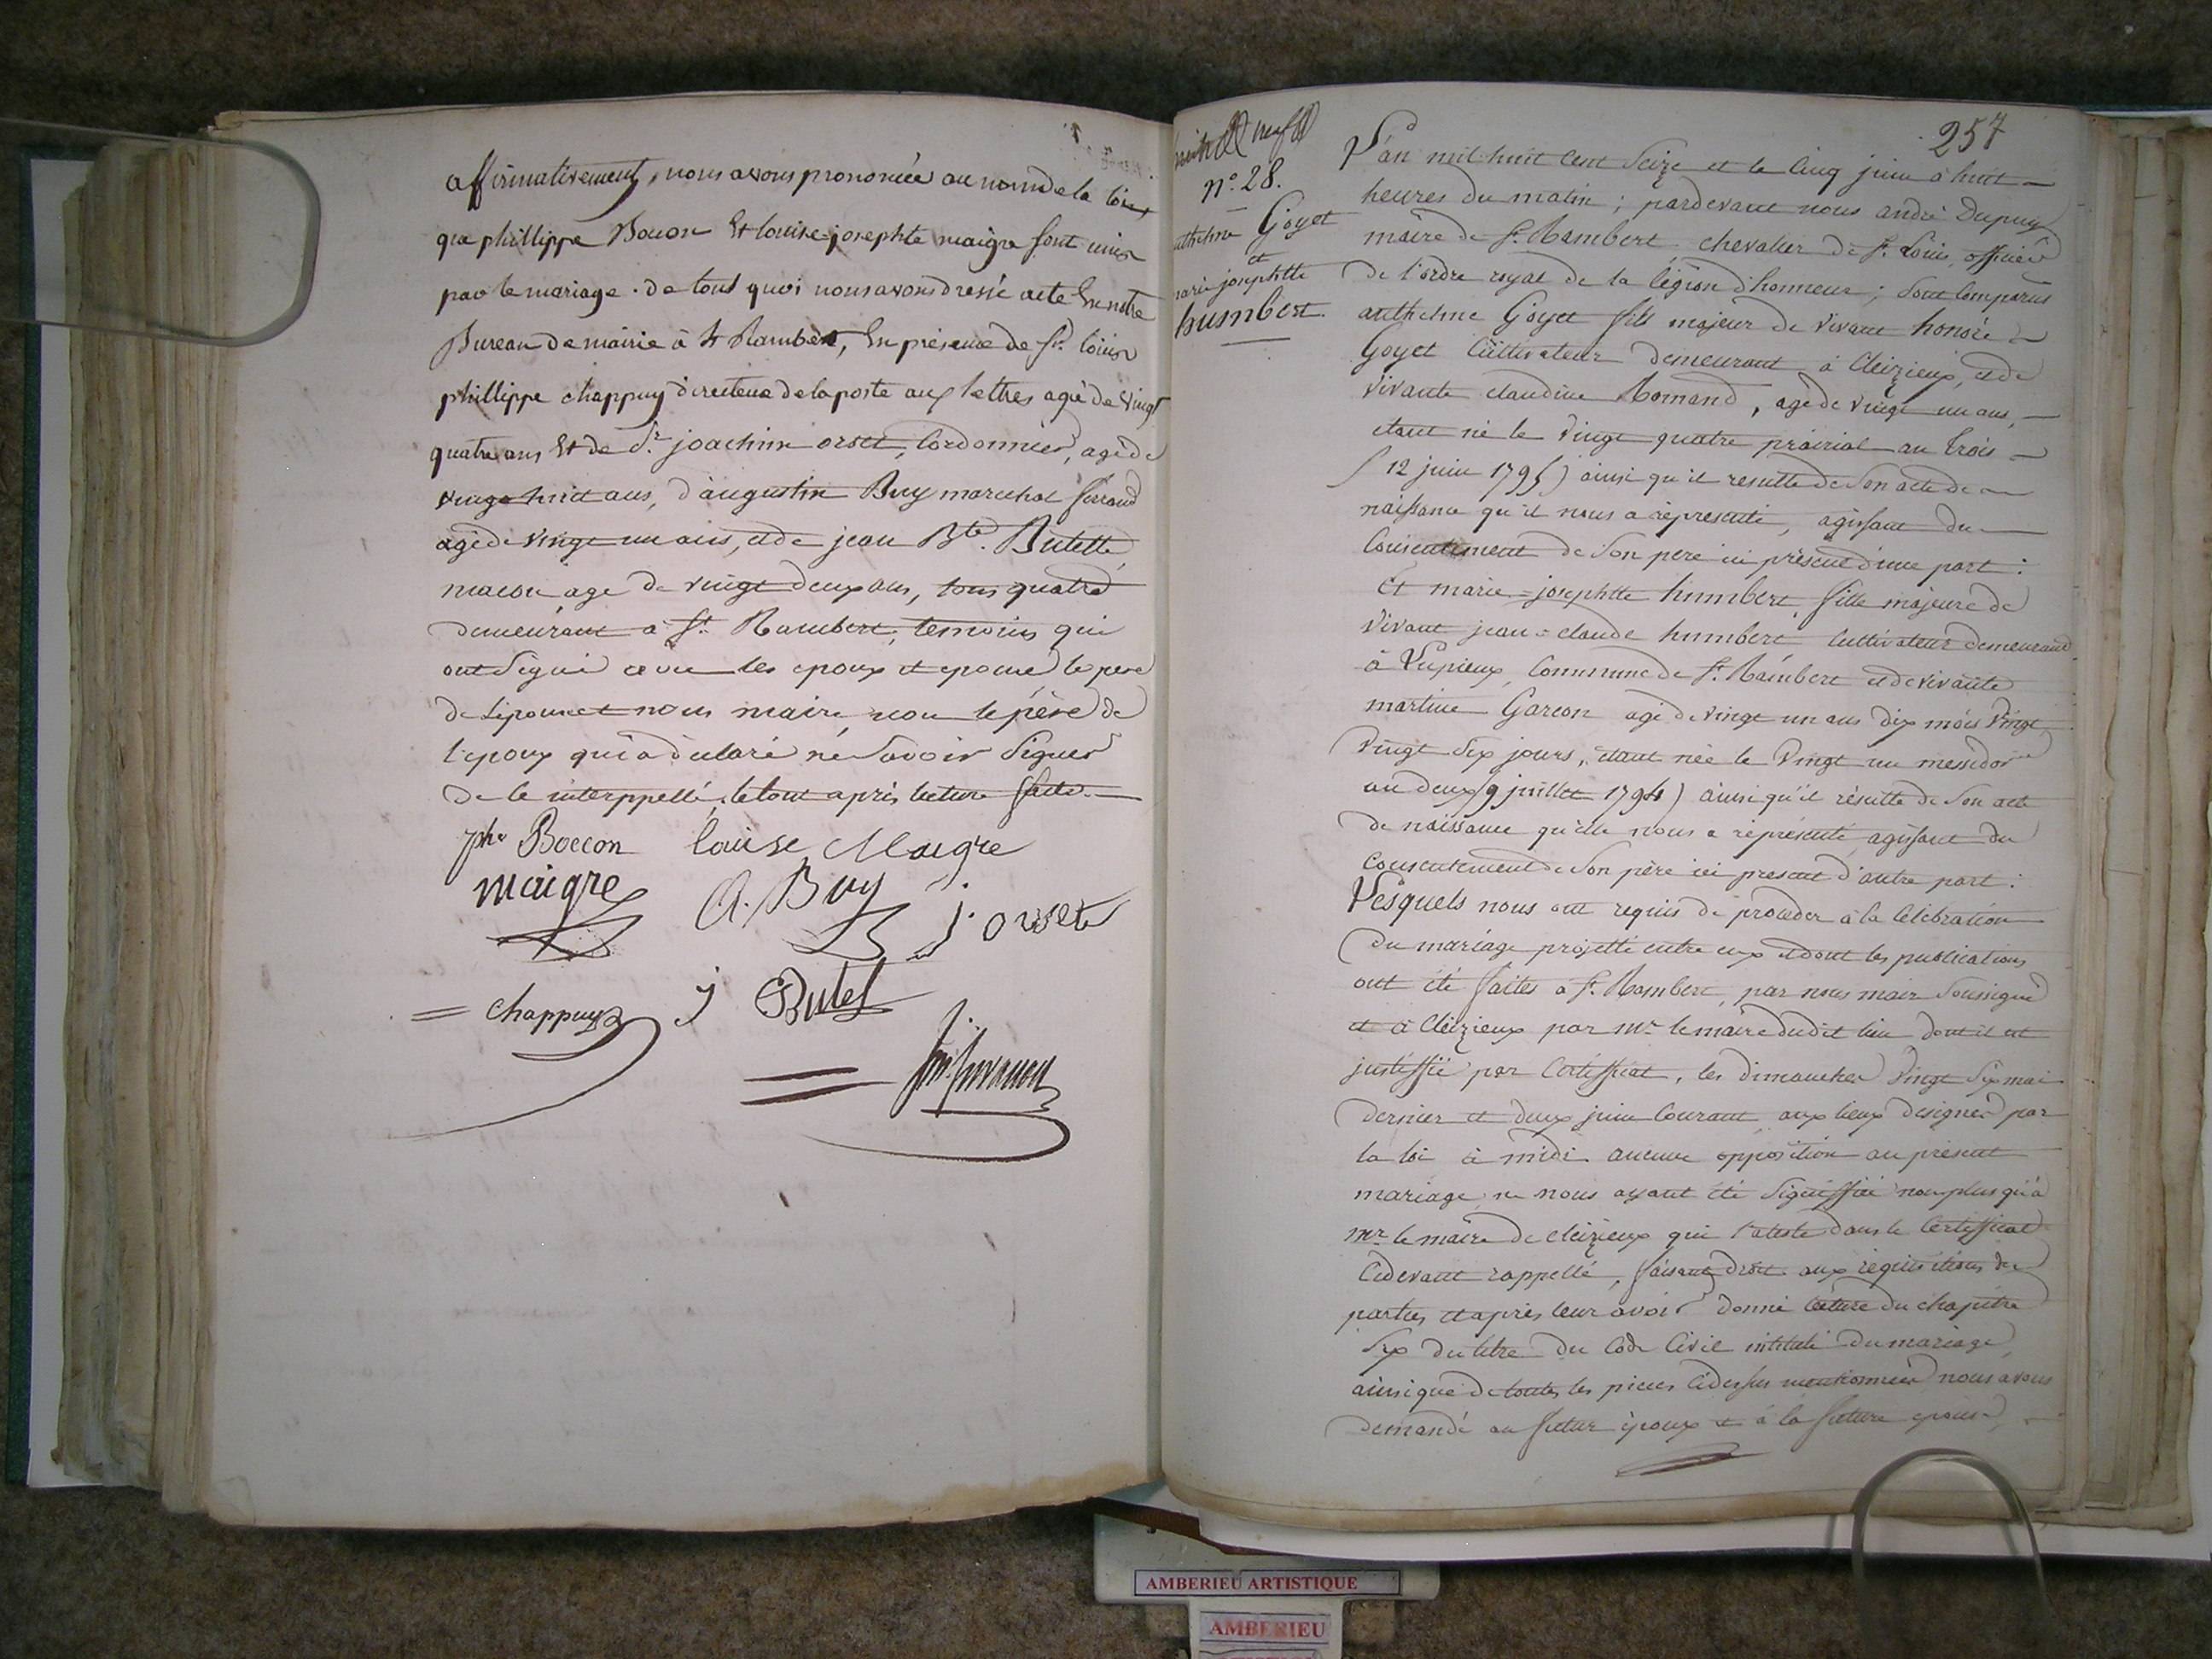 affirmativement, nous avons prononcée au nom de la loix
que phillippe Bocon Et louise=josephte maigre sont unis
par le mariage. de tout quoi nous avons dressé acte En notre
Bureau de mairie à St Rambert, En présence de Sr. louis
phillippe chappuy directeur de la poste aux lettres agé de vingt
quatre ans Et de Sr. joachim orset, Cordonnier, agé de
vingt huit ans, d'augustin Buy marechal ferrand
agé de vingt un ans, et de jean Bte. Butette
macon age de vingt deux ans, tous quatre
demeurant à St. Rambert, temoins qui
ont signé avec les epoux et epouse, le pere
de l'epouse et nous maire, non le père de
l'epoux qui a déclaré ne savoir signer
de ce interppellé, le tout après lecture faite.
phe Boccon louise Maigre
maigre A. Buy j. orset
= chappuy j Butet
257
huit neuf
n°. 28.
anthelme Goyet
et
marie josephtte
humbert.
L'an mil huit cent seize et le cinq juin à huit
heures du matin ; pardevant nous andré Dupuy
maire de St. Rambert chevalier de St. Louis, officier
de l'ordre royal de la légion d'honneur ; sont comparus
anthelme Goyet fils majeur de vivant honoré
Goyet Cultivateur demeurant à Cleizieux, et de
vivante claudine Romand, agé de vingt un ans,
etant né le vingt quatre prairial an trois
(12 juin 1795) ainsi qu'il resulte de son acte de
naissance qu'il nous a représenté, agissant du
Consentement de son pere ici présent d'une part :
Et marie=josephtte humbert, fille majeure de
vivant jean=claude humbert Cultivateur demeurant
à Lupieux, Commune de St. Rambert et de vivante
martine Garcon agé de vingt un ans dix mois vingt
vingt six jours, etant née le vingt un messidor
an deux (9 juillet 1794) ainsi qu'il résulte de son acte
de naissance qu'elle nous a représenté agissant du
consentement de son père ici present d'autre part :
Lesquels nous ont requis de proceder à la Célébration
du mariage projetté entre eux et dont les publications
ont été faites a St. Rambert, par nous maire soussigné
et à Cleizieux par mr. le maire dudit lieu dont il est
justiffié par Certifficat, les dimanches vingt six mai
dernier et deux juin Courant aux lieux designés par
la loi à midi aucune opposition au présent
mariage ne nous ayant été signiffiée non plus qu'à
mr. le maire de cleizieux qui l'ateste dans le Certifficat
Cidevant rappellé, faisant droit aux réquisitions des
parties et après leur avoir donné lecture du chapitre
Six du titre du Code Civil intitulé du mariage,
ainsi que de toutes les pieces Cidessus mentionnées nous avons
demandé au futur époux et à la future epouse,
AMBERIEU ARTISTIQUE
AMBERIEU